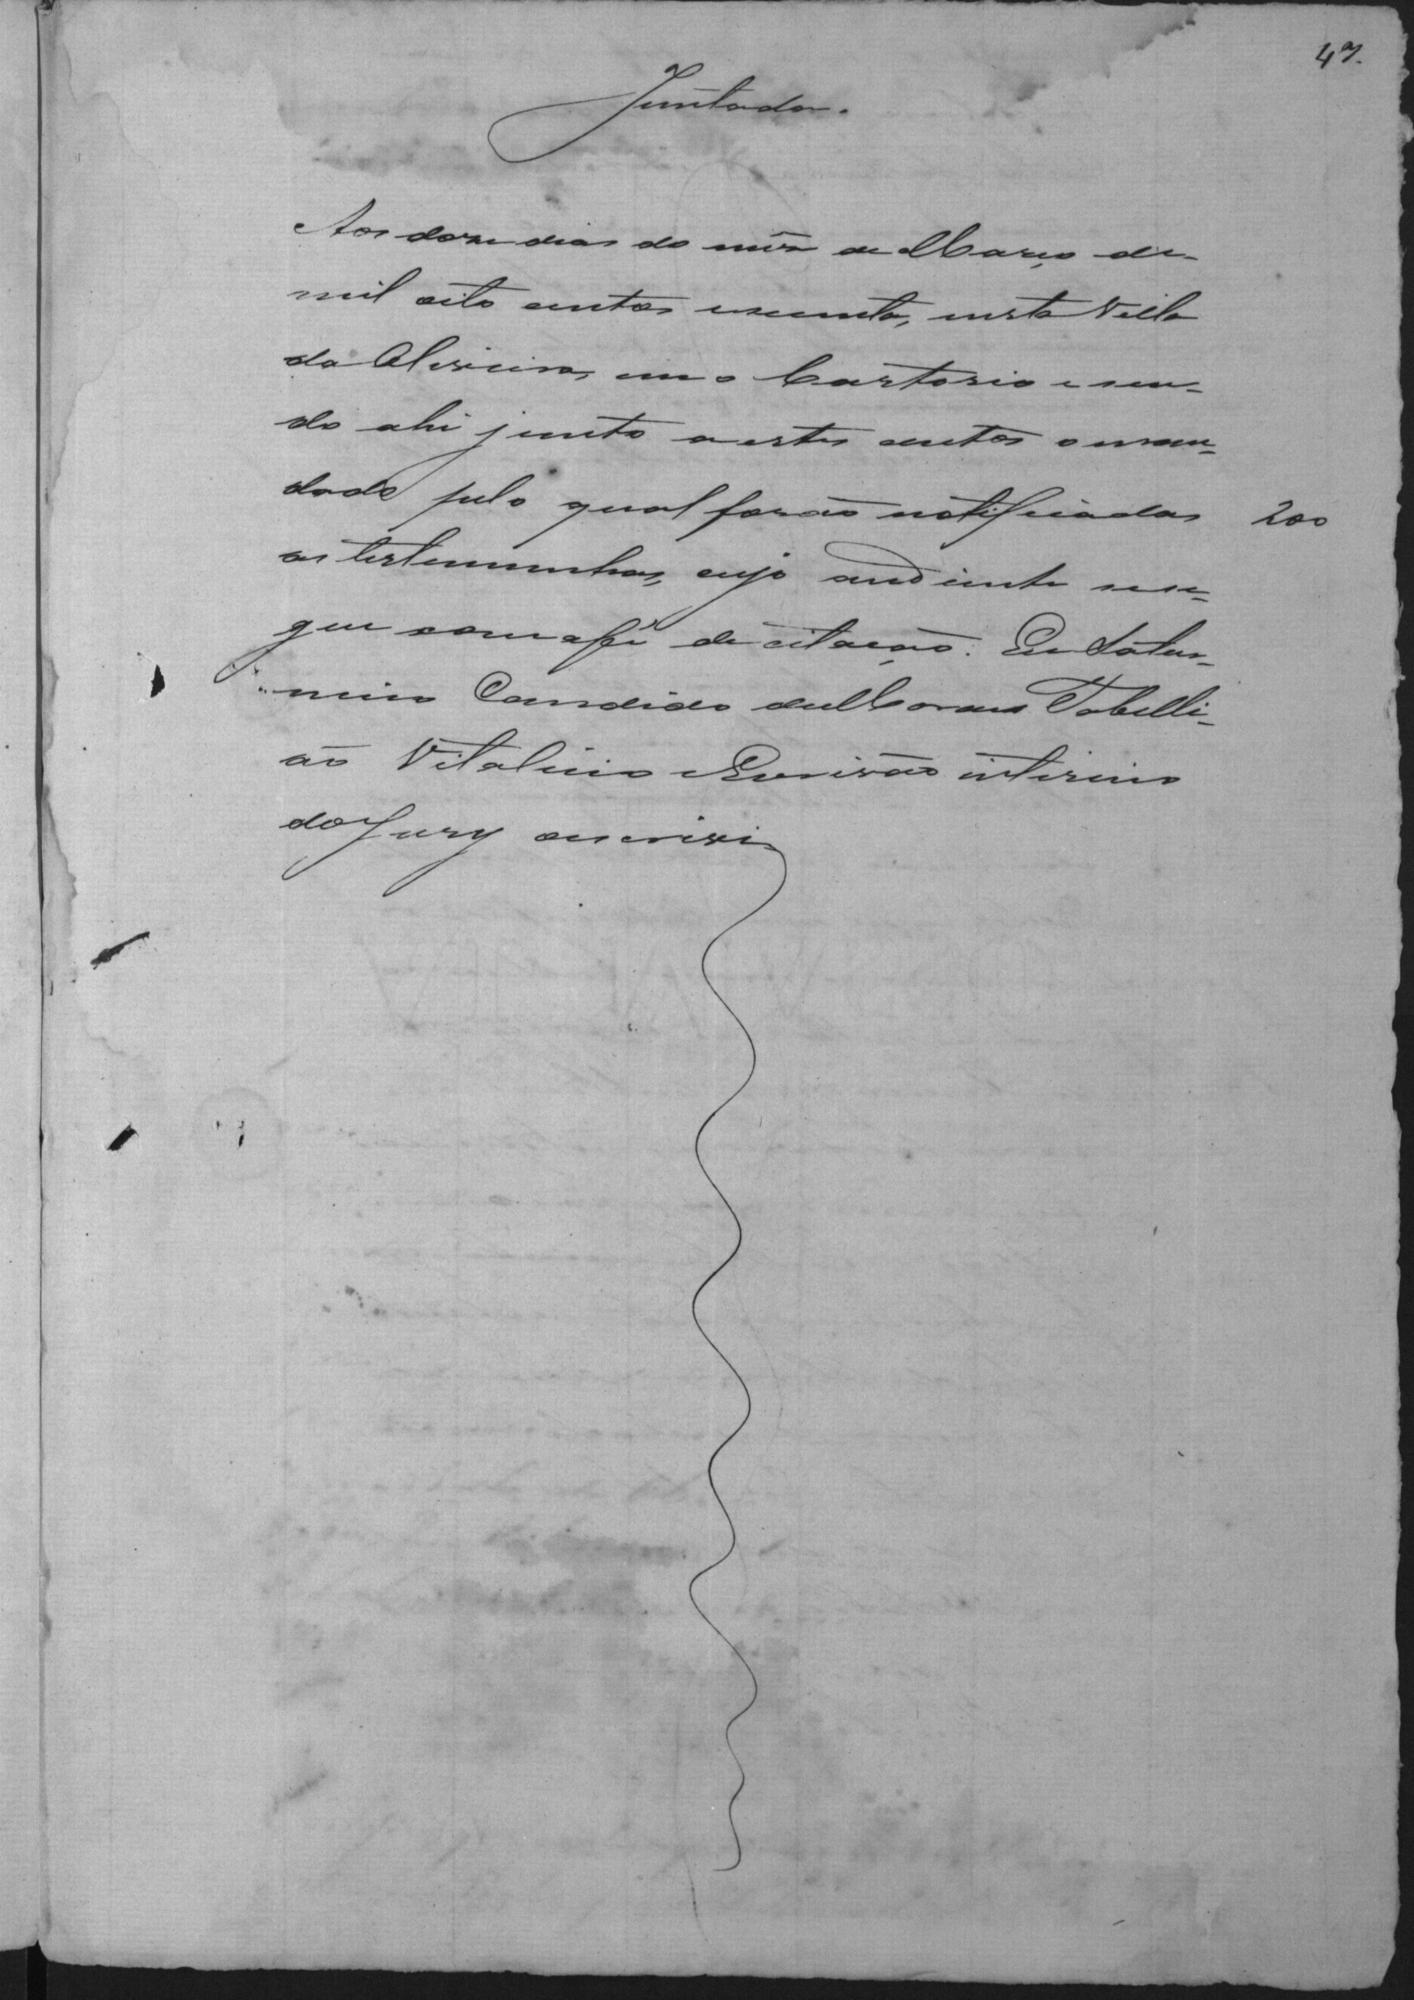 47.
Juntada.
Aos doze dias do mez de Março de
mil oito centos e secenta, nesta Villa
da Oliveira, em o Cartorio e sen-
do ahi junto a estes autos o man-
dado pelo qual forão notificadas 200
as testemunhas, cujo andiente se se-
gue com a fé de citação. Eu Satur-
nino Candido de Moraes Tabelli-
ão Vitalicio e Escrivão interino
do Jury o escrivi